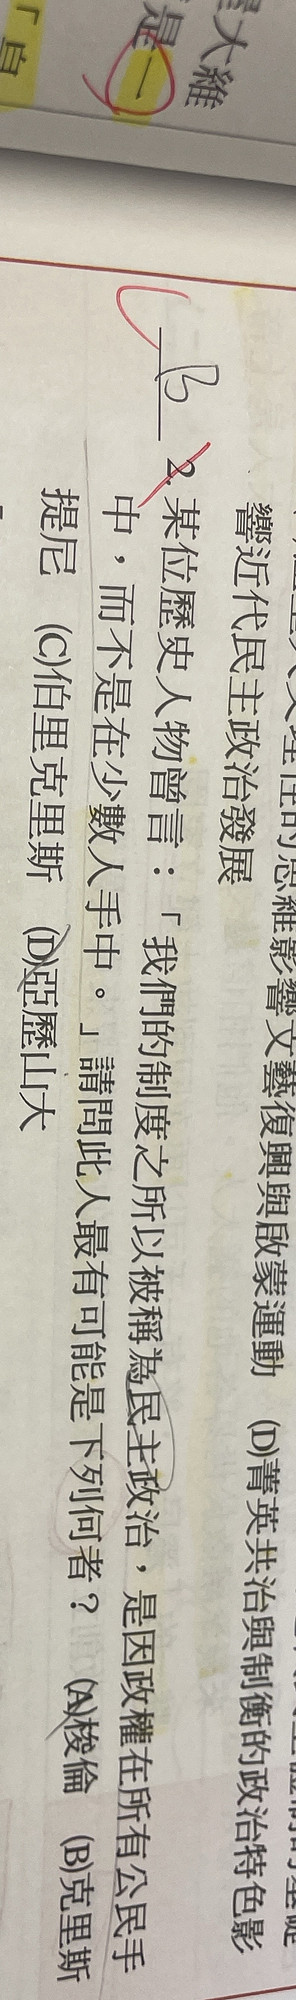 大維
是一
「皇
理性的思維影響文藝復興與啟蒙運動 (D)菁英共治與制衡的政治特色影
響近代民主政治發展
B 2.某位歷史人物曾言：「我們的制度之所以被稱為民主政治，是因政權在所有公民手
中，而不是在少數人手中。」請問此人最有可能是下列何者？ (A)梭倫 (B)克里斯
提尼 (C)伯里克里斯 (D)亞歷山大